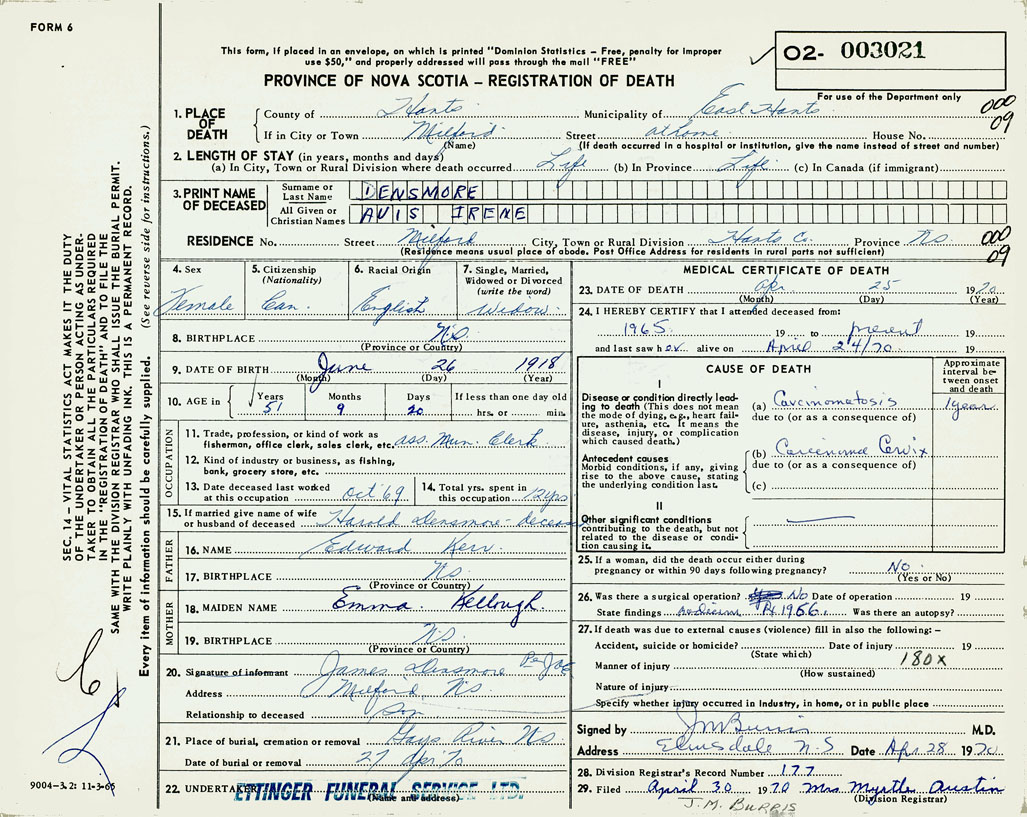 FORM 6
This form, if placed in an envelope, on which is printed "Dominion Statistics – Free, penalty for improper
use $50," and properly addressed will pass through the mail "FREE"
O2- 003021
PROVINCE OF NOVA SCOTIA – REGISTRATION OF DEATH
For use of the Department only
000
09
1. PLACE OF DEATH
County of Hants Municipality of East Hants
If in City or Town Milford Street at home House No.
(Name) (If death occurred in a hospital or institution, give the name instead of street and number)
2. LENGTH OF STAY (in years, months and days)
(a) In City, Town or Rural Division where death occurred Life (b) In Province Life (c) In Canada (if immigrant)
3. PRINT NAME OF DECEASED
Surname or Last Name DENSMORE
All Given or Christian Names AVIS IRENE
RESIDENCE No. Street Milford City, Town or Rural Division Hants Co. Province NS
(Residence means usual place of abode. Post Office Address for residents in rural parts not sufficient)
000
09
4. Sex
Female
5. Citizenship
(Nationality)
Can.
6. Racial Origin
English
7. Single, Married,
Widowed or Divorced
(write the word)
Widow
8. BIRTHPLACE N.S.
(Province or Country)
9. DATE OF BIRTH June 26 1918
(Month) (Day) (Year)
10. AGE in
Years Months Days If less than one day old
51 9 20 hrs. or min.
OCCUPATION
11. Trade, profession, or kind of work as
fisherman, office clerk, sales clerk, etc. ass. Mun. Clerk
12. Kind of industry or business, as fishing,
bank, grocery store, etc.
13. Date deceased last worked
at this occupation Oct '69
14. Total yrs. spent in
this occupation 12 yrs
15. If married give name of wife
or husband of deceased Harold Densmore - deceased
FATHER
16. NAME Edward Kerr
17. BIRTHPLACE NS
(Province or Country)
MOTHER
18. MAIDEN NAME Emma Kellough
19. BIRTHPLACE N.S.
(Province or Country)
20. Signature of informant James Densmore
Address Milford, NS.
Relationship to deceased Son
21. Place of burial, cremation or removal Gays River NS.
Date of burial or removal 27 Apr 70
22. UNDERTAKER ETTINGER FUNERAL SERVICE LTD.
(Name and address)
MEDICAL CERTIFICATE OF DEATH
23. DATE OF DEATH Apr 25 1970
(Month) (Day) (Year)
24. I HEREBY CERTIFY that I attended deceased from:
1965 19 to present 19
and last saw her alive on April 24/70 19
CAUSE OF DEATH
Approximate
interval be-
tween onset
and death
I
Disease or condition directly lead-
ing to death (This does not mean
the mode of dying, e.g., heart fail-
ure, asthenia, etc. It means the
disease, injury, or complication
which caused death.)
(a) Carcinomatosis 1 year
due to (or as a consequence of)
Antecedent causes
Morbid conditions, if any, giving
rise to the above cause, stating
the underlying condition last.
(b) Carcinoma Cervix
due to (or as a consequence of)
(c)
II
Other significant conditions
contributing to the death, but not
related to the disease or condi-
tion causing it.
25. If a woman, did the death occur either during
pregnancy or within 90 days following pregnancy? No
(Yes or No)
26. Was there a surgical operation? No Date of operation 19
State findings Rx 1966 Was there an autopsy?
27. If death was due to external causes (violence) fill in also the following: –
Accident, suicide or homicide? Date of injury 19
(State which)
180X
Manner of injury
(How sustained)
Nature of injury
Specify whether injury occurred in industry, in home, or in public place
Signed by J M Burris M.D.
Address Elmsdale N.S Date Apr 28 1970
28. Division Registrar's Record Number 177
29. Filed April 30 1970 Mrs Myrtle Austin
(Division Registrar)
J. M. BURRIS
SEC. 14 – VITAL STATISTICS ACT MAKES IT THE DUTY
OF THE UNDERTAKER OR PERSON ACTING AS UNDER-
TAKER TO OBTAIN ALL THE PARTICULARS REQUIRED
IN THE "REGISTRATION OF DEATH" AND TO FILE THE
SAME WITH THE DIVISION REGISTRAR WHO SHALL ISSUE THE BURIAL PERMIT.
WRITE PLAINLY WITH UNFADING INK. THIS IS A PERMANENT RECORD.
Every item of information should be carefully supplied. (See reverse side for instructions.)
9004–3.2: 11-3-65